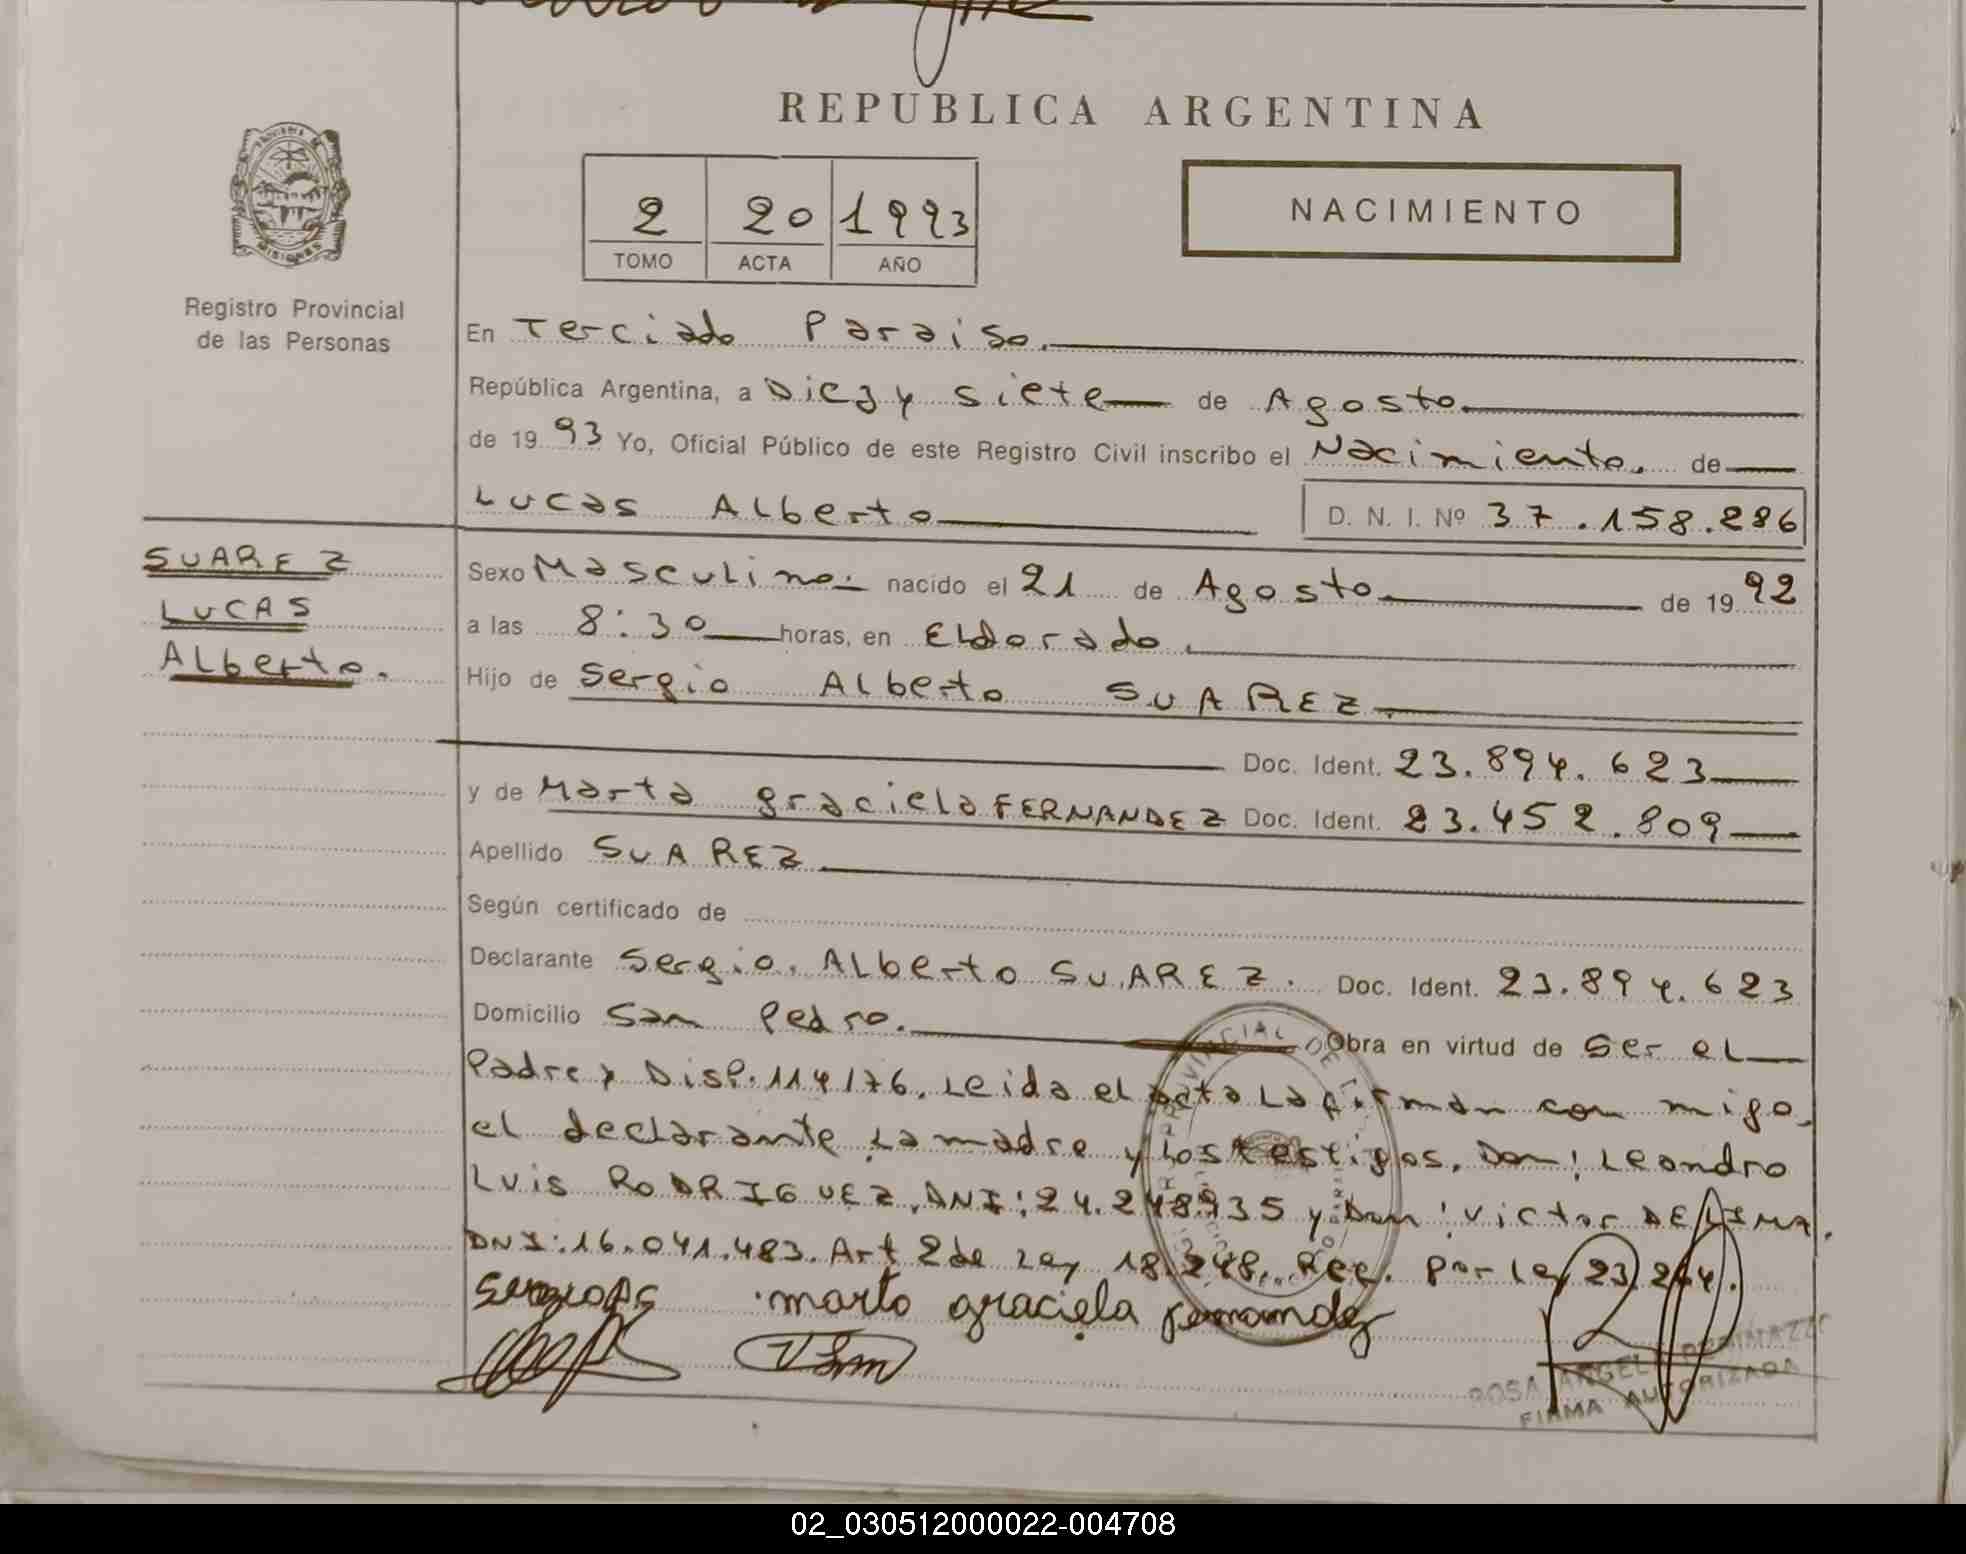 REPUBLICA ARGENTINA
2 20 1993
TOMO ACTA AÑO
NACIMIENTO
MISIONES
Registro Provincial
de las Personas
En Terciado Paraiso.
República Argentina, a Diez y siete de Agosto
de 19 93 Yo, Oficial Público de este Registro Civil inscribo el Nacimiento. de
Lucas Alberto
D. N. I. Nº 37.158.286
SUAREZ
LUCAS
Alberto.
Sexo Masculino. nacido el 21 de Agosto de 19 92
a las 8:30 horas, en Eldorado.
Hijo de Sergio Alberto SUAREZ
Doc. Ident. 23.894.623
y de Marta graciela FERNANDEZ Doc. Ident. 23.452.809
Apellido SUAREZ
Según certificado de
Declarante Sergio. Alberto SUAREZ. Doc. Ident. 23.894.623
Domicilio San Pedro. Obra en virtud de Ser el
Padre y Disp. 114/76. Leida el acta La firman con migo.
el declarante La madre y Los testigos. Don: Leandro
Luis RODRIGUEZ. DNI: 24.248935 y Don: Victor DE LIMA.
DNI: 16.041.483. Art 2 de Ley 18.248. Rec. Por Ley 23.264.
marta graciela fernandez
ROSA ANGEL
FIRMA AUTORIZADA
02_030512000022-004708